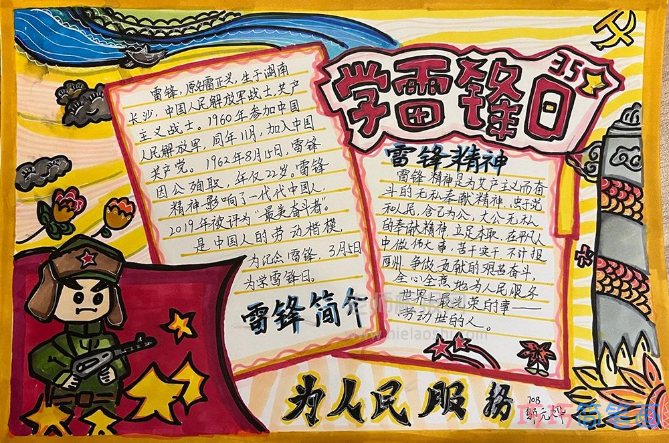 学雷锋日
3.5
雷锋,原名雷正兴,生于湖南
长沙,中国人民解放军战士,共产
主义战士。1960年参加中国
人民解放军,同年11月,加入中国
共产党。1962年8月15日,雷锋
因公殉职,年仅22岁,雷锋
精神影响了一代代中国人,
2019年被评为“最美奋斗者”。
是中国人的劳动楷模,
为记念雷锋,3月5日
为学雷锋日。
雷锋简介
雷锋精神
雷锋精神是为共产主义而奋
斗的无私奉献精神,忠于党
和人民,舍己为公,大公无私
的奉献精神,立足本职,在平凡
中做伟大事,苦干实干,不计报
酬,争做贡献的艰苦奋斗,
全心全意地为人民服务
世界上最光荣的事——
劳动
的人。
为人民服务